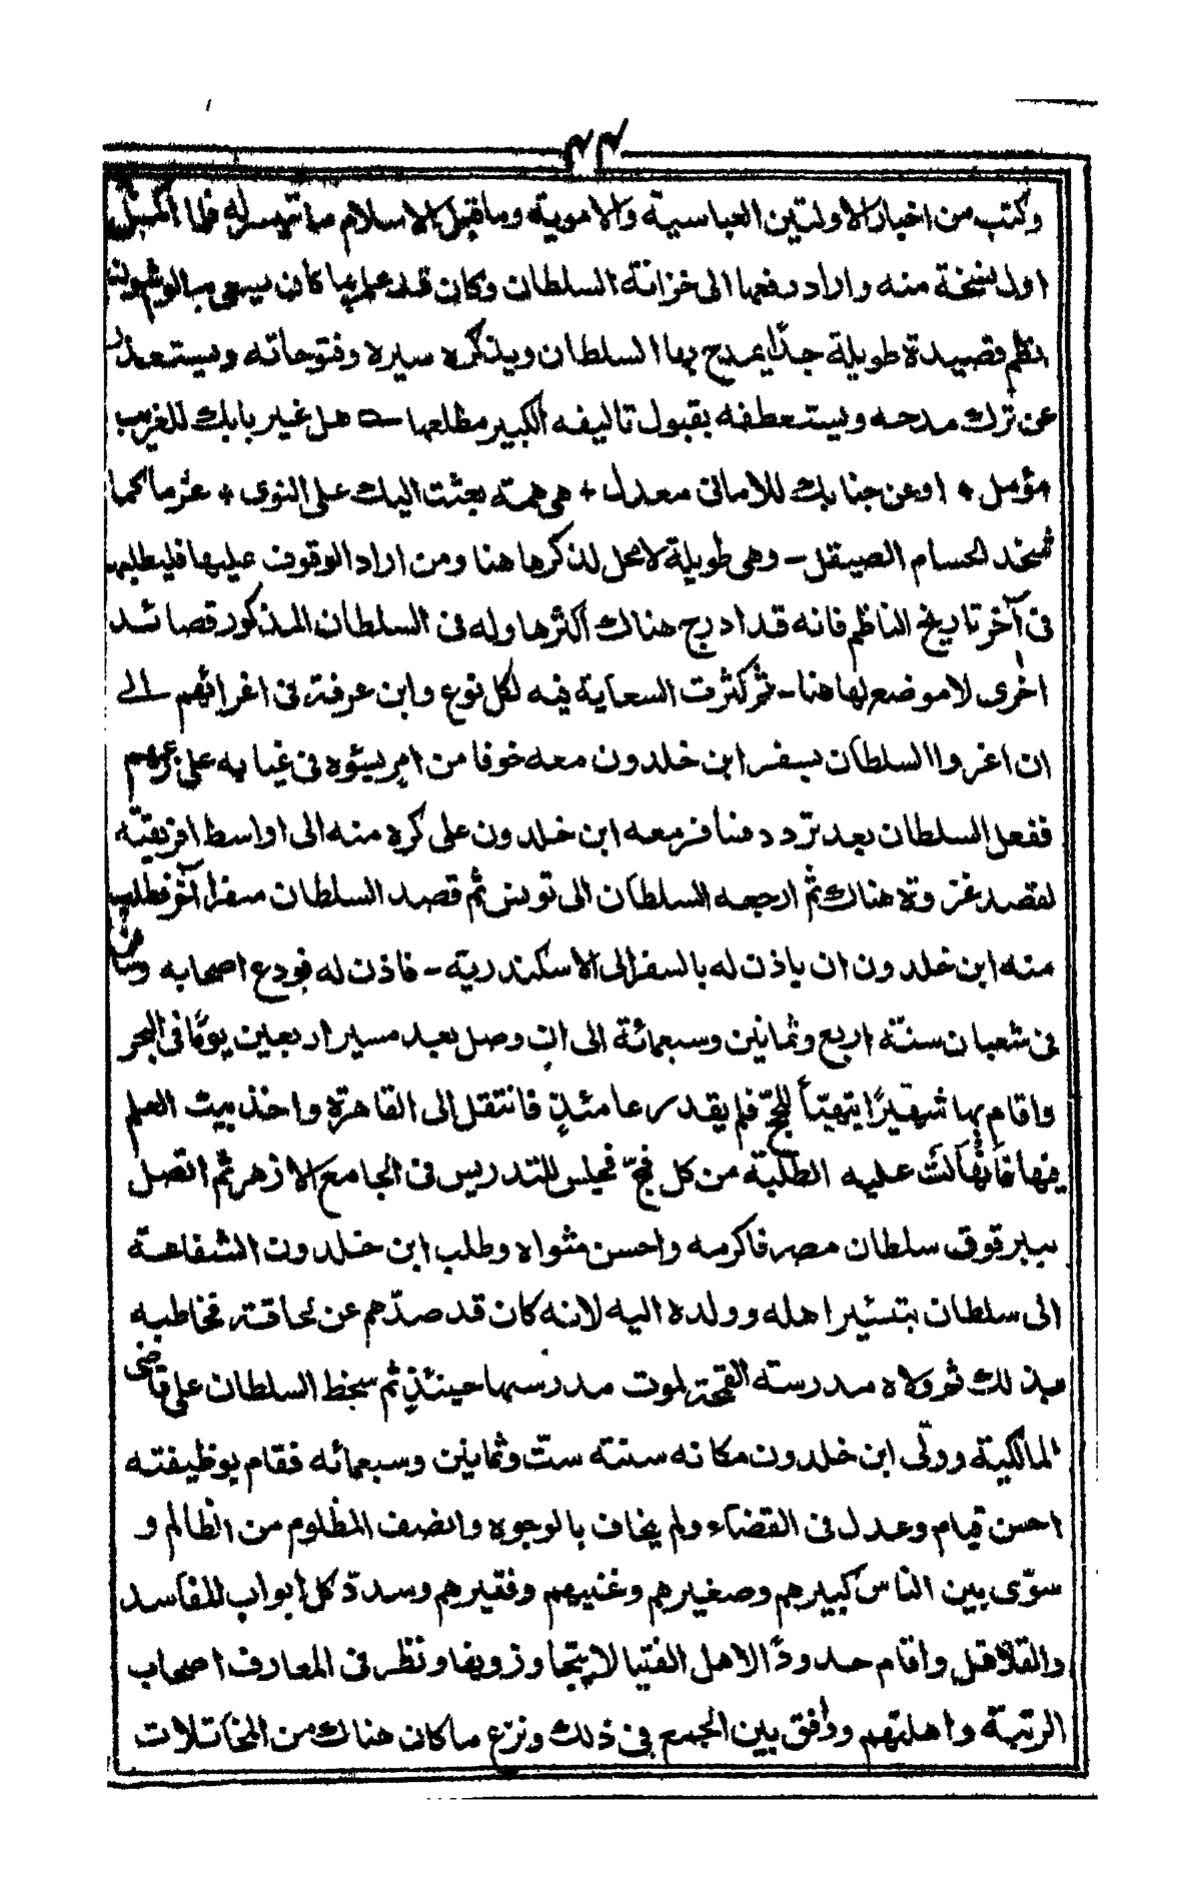 ٢٣
وكتب من اخبار الاولتين العباسية والاموية وما قبل الاسلام ما تيسر له فلما اكمل
اول نسخة منه واراد رفعها الى خزانة السلطان وكان قد علم بما كان يسعى به الوشون
نظم قصيدة طويلة جدًا يمدح بها السلطان ويذكره سيره وفتوحاته ويستعذر
عن ترك مدحه ويستعطفه بقبول تاليفه الكبير مطلعها ـ هل غير بابك للغريب
مؤمل + او عن جنابك للامانى معدل + هى همة بعثت اليك على النوى + عزما كما
شحذ الحسام الصيقل – وهى طويلة لا محل لذكرها هنا ومن اراد الوقوف عليها فليطلبه
فى آخر تاريخ الناظم فانه قد ادرج هناك اكثرها وله فى السلطان المذكور قصائد
اخرى لا موضع لها هنا – ثم كثرت السعاية فيه لكل نوع وابن عرفة فى اغرائهم الى
ان اغروا السلطان بسفر ابن خلدون معه خوفا من امر يسئوه فى غيابه على
ففعل السلطان بعد تردد فسافر معه ابن خلدون على كره منه الى اواسط افريقية
لقصد غزوة هناك ثم ارجعه السلطان الى تونس ثم قصد السلطان سفرا آخر فطلب
منه ابن خلدون ان ياذن له بالسفر الى الاسكندرية – فاذن له فودع اصحابه وسافر
فى شعبان سنة اربع وثمانين وسبعمائة الى ان وصل بعد مسير اربعين يومًا فى البحر
واقام بها شهيرًا يتهيّأ للحجّ فلم يقدر عامئذٍ فانتقل الى القاهرة واخذ يبث العلم
فيها فانهالت عليه الطلبة من كل فجّ فجلس للتدريس فى الجامع الازهر ثم اتصل
ببرقوق سلطان مصر فاكرمه واحسن مثواه وطلب ابن خلدون الشفاعة
الى سلطان بتسئير اهله وولده اليه لانه كان قد صدّهم عن لحاقته فخاطبه
بذلك ثم ولاه مدرسته القمحة لموت مدرسها حينئذٍ ثم سخط السلطان على قاضى
المالكية وولّى ابن خلدون مكانه سنة ستّ وثمانين وسبعمائه فقام بوظيفته
احسن قيام وعدل فى القضاء ولم يخاف بالوجوه وانصف المظلوم من الظالم و
سوّى بين الناس كبيرهم وصغيرهم وغنيهم وفقيرهم وسدّ كل ابواب للمفاسد
والقلاقل واقام حدودًا لاهل الفتيا لا يتجاوزونها ونظر فى المعارف اصحاب
الرتبة واهليتهم ووافق بين الجمع فى ذلك ونزع ما كان هناك من المخاتلات